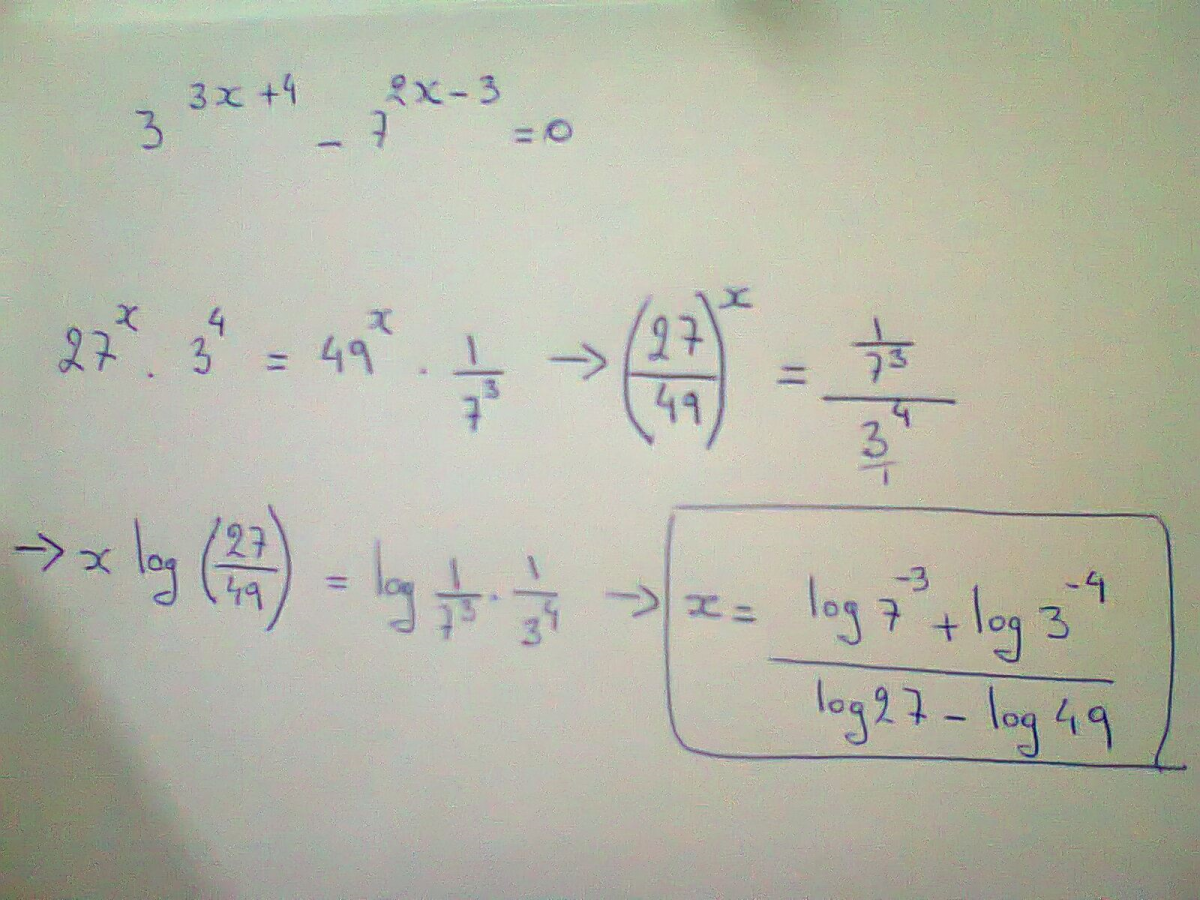 3^{3x+4} - 7^{2x-3} = 0
27^x . 3^4 = 49^x . \frac{1}{7^3} → \left(\frac{27}{49}\right)^x = \frac{\frac{1}{7^3}}{\frac{3^4}{1}}
→ x log \left(\frac{27}{49}\right) = log \frac{1}{7^3} . \frac{1}{3^4} → x = \frac{log 7^{-3} + log 3^{-4}}{log 27 - log 49}